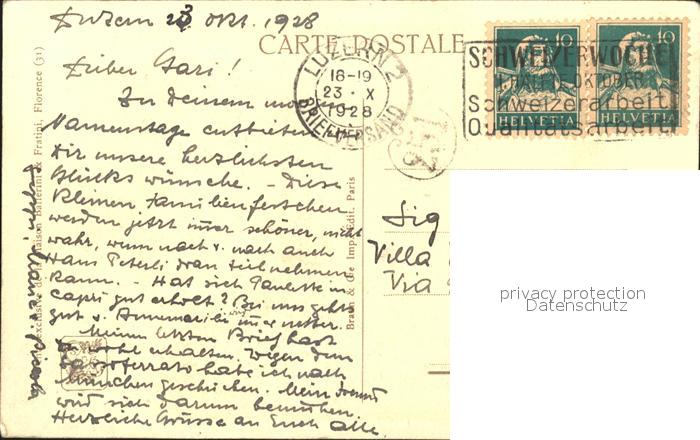 Luzern 23. Okt. 1928
CARTE POSTALE
Lieber Gari!
Zu Deinem
Namenstage entbieten
Dir unsere herzlichsten
Glückswünsche. - Diese
kleinen Familienfestchen
werden jetzt immer schöner, nicht
wahr, wenn nach & nach auch
Hans Peterli dran teilnehmen
kann. - Hat sich Paulette in
Capri gut erholt? Bei uns gehts
gut & Annemarieli immer netter.
Meinen letzten Brief hast
wohl erhalten. Wegen dem
habe ich nach
München geschrieben. Mein Freund
wird sich darum bemühen.
Herzliche Grüsse an Euch alle
LUZERN 2
18-19
23. X
1928
BRIEFVERSAND
SCHWEIZERWOCHE
OKTOBER
Schweizerarbeit
Qualitätsarbeit
10
HELVETIA
10
HELVETIA
Sig
Villa
Via
Braun & Cie Imp.-Edit. Paris
exclusive de la maison Ballerini & Fratini, Florence (31)
privacy protection
Datenschutz